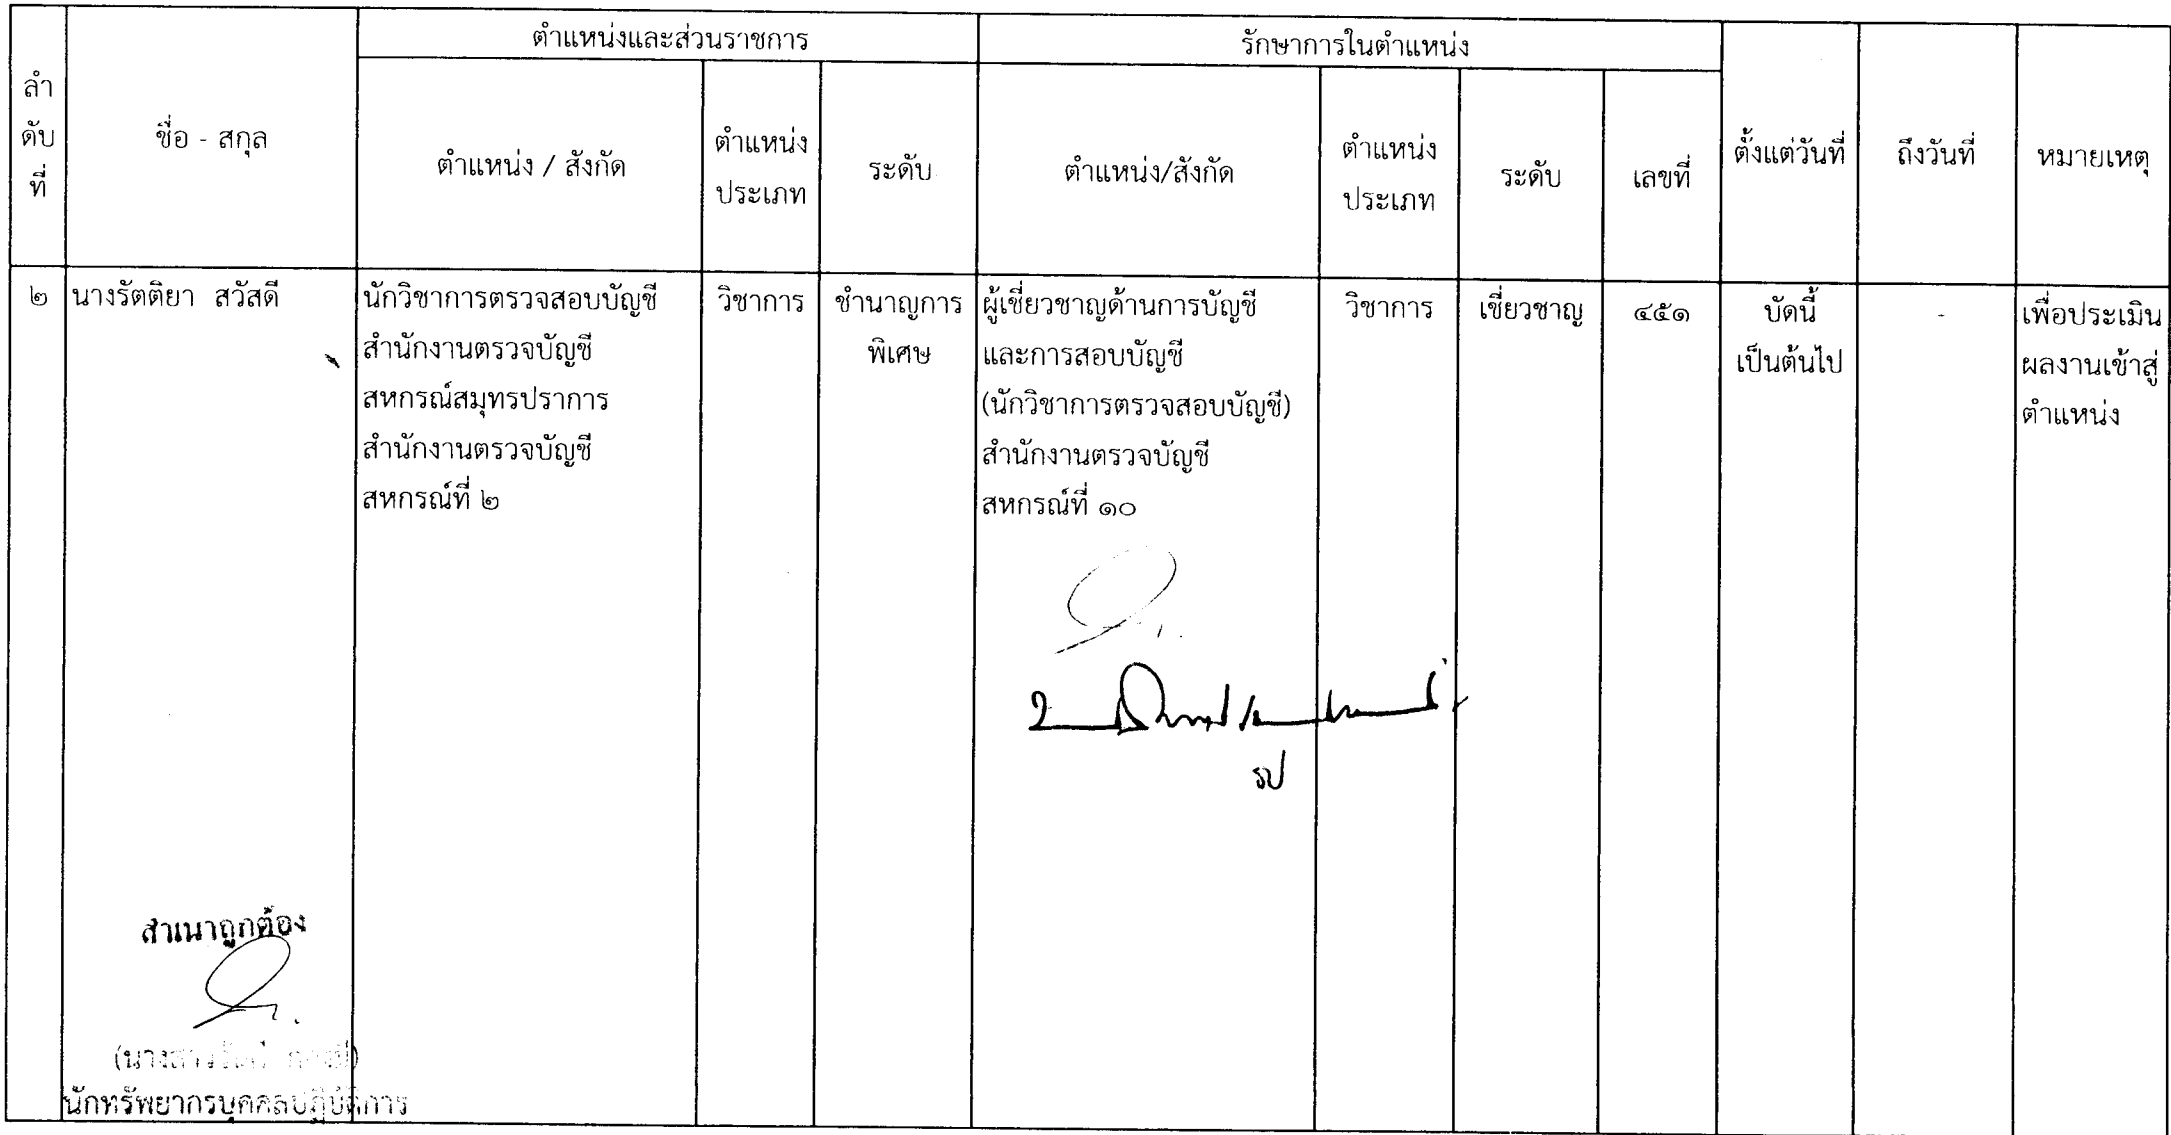 ลำ
ดับ
ที่
ชื่อ - สกุล
ตำแหน่งและส่วนราชการ
ตำแหน่ง / สังกัด
ตำแหน่ง
ประเภท
ระดับ
รักษาการในตำแหน่ง
ตำแหน่ง/สังกัด
ตำแหน่ง
ประเภท
ระดับ
เลขที่
ตั้งแต่วันที่
ถึงวันที่
หมายเหตุ
๒
นางรัตติยา สวัสดี
นักวิชาการตรวจสอบบัญชี
สำนักงานตรวจบัญชี
สหกรณ์สมุทรปราการ
สำนักงานตรวจบัญชี
สหกรณ์ที่ ๒
วิชาการ
ชำนาญการ
พิเศษ
ผู้เชี่ยวชาญด้านการบัญชี
และการสอบบัญชี
(นักวิชาการตรวจสอบบัญชี)
สำนักงานตรวจบัญชี
สหกรณ์ที่ ๑๐
วิชาการ
เชี่ยวชาญ
๔๕๑
บัดนี้
เป็นต้นไป
-
เพื่อประเมิน
ผลงานเข้าสู่
ตำแหน่ง
รป
สำเนาถูกต้อง
นักทรัพยากรบุคคลปฏิบัติการ